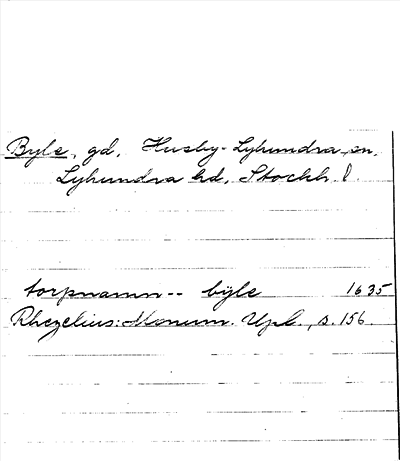 Byle, gd, Husby-Lyhundra sn,
Lyhundra hd, Stockh. l.
torpnamn -- bÿle 1635
Rhezelius: Monum. Upl., s. 156.